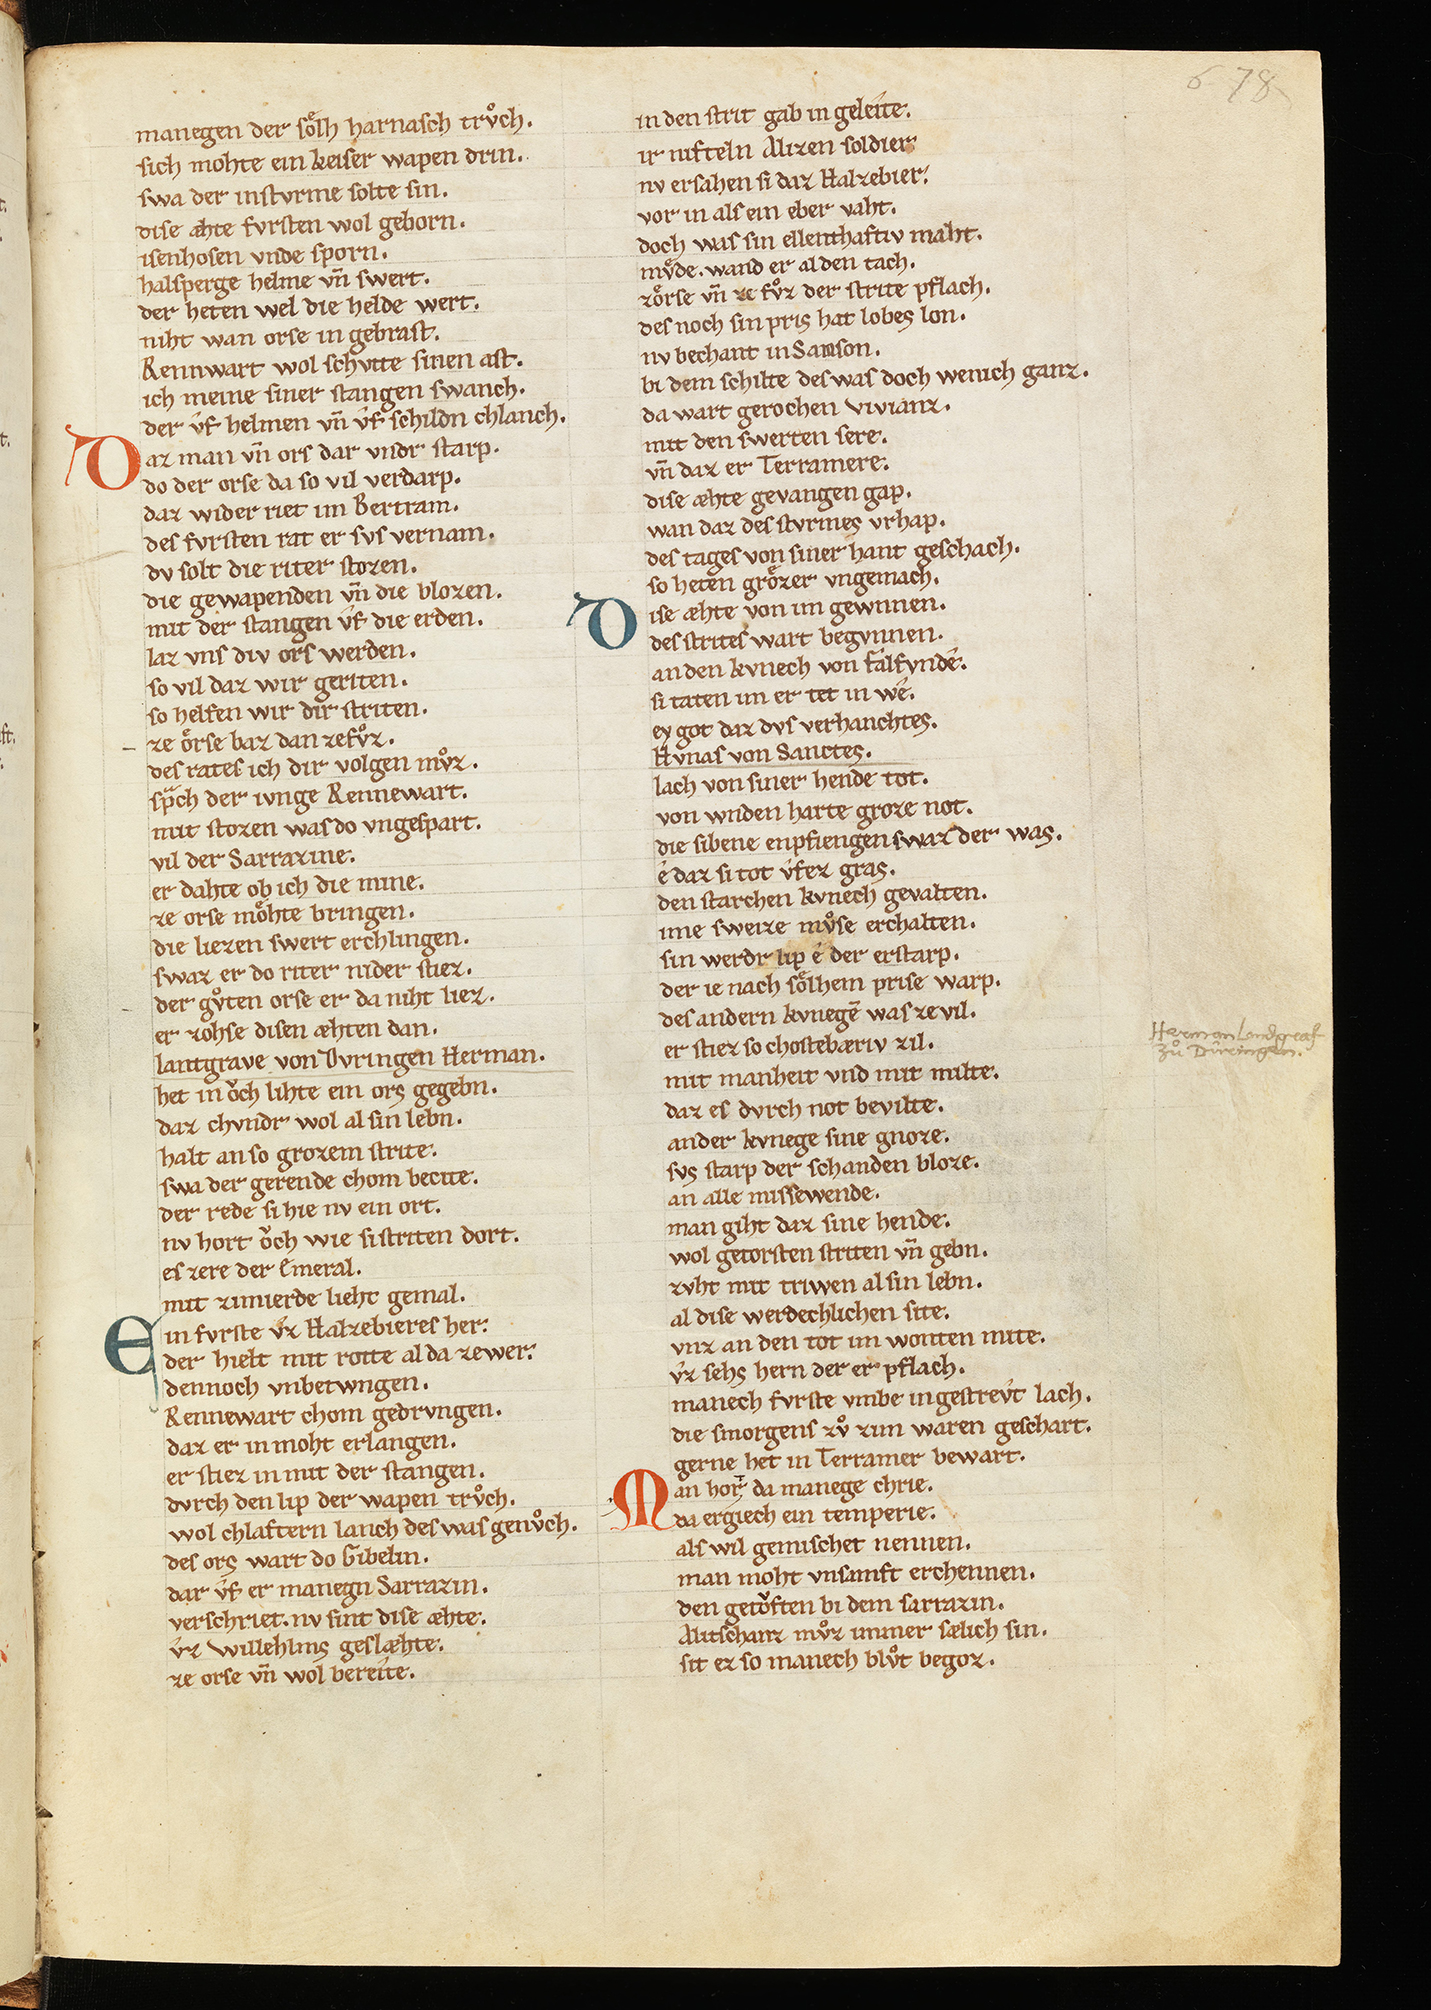 6 78
manegen der soͤlh harnasch truͦch.
sich mohte ein keiser wapen drin.
swa der insturme solte sin.
dise æhte fvrsten wol geborn.
isenhosen vnde sporn.
halsperge helme vn̄ swert.
der heten wel die helde wert.
niht wan orse in gebrast.
Rennwart wol schvtte sinen ast.
ich meine siner stangen swanch.
der v́f helmen vn̄ v́f schildn chlanch.
Daz man vn̄ ors dar vndr starp.
do der orse da so vil verdarp.
daz wider riet im Bertram.
des fvrsten rat er svs vernam.
dv solt die riter stozen.
die gewapenden vn̄ die blozen.
mit der stangen v́f die erden.
laz vns div ors werden.
so vil daz wir geriten.
so helfen wir dir striten.
ze oͤrse baz dan zefvͦz.
des rates ich dir volgen mvͦz.
sp̃ch der ivnge Rennewart.
mit stozen was do vngespart.
vil der Sarrazine.
er dahte ob ich die mine.
ze orse moͤhte bringen.
die liezen swert erchlingen.
swaz er do riter nider stiez.
der gvͦten orse er da niht liez.
er zohse disen æhten dan.
lantgrave von Dvringen Herman.
het in oͮch lihte ein ors gegebn.
daz chvndr wol al sin lebn.
halt an so grozem strite.
swa der gerende chom becite.
der rede si hie nv ein ort.
nv hort oͮch wie si striten dort.
es zere der Emeral.
mit zimierde lieht gemal.
Ein fvrste v́z Halzebieres her.
der hielt mit rotte al da zewer.
dennoch vnbetwngen.
Rennewart chom gedrvngen.
daz er in moht erlangen.
er stiez in mit der stangen.
dvrch den lip der wapen trvͦch.
wol chlaftern lanch des was genvͦch.
des ors wart do Gibelin.
dar v́f er manegn Sarrazin.
verschriet. nv sint dise æhte.
v́z Willehlms geslæhte.
ze orse vn̄ wol bereite.
in den strit gab in geleite.
ir nifteln Alizen soldier
nv ersahen si daz Halzebier.
vor in als ein eber vaht.
doch was sin ellenthaftiv maht.
mvͤde. wand er al den tach.
zoͤrse vn̄ ze fvͦz der strite pflach.
des noch sin pris hat lobes lon.
nv bechant in Samson.
bi dem schilte des was doch wenich ganz.
da wart gerochen vivianz.
mit den swerten sere.
vn̄ daz er Terramere.
dise æhte gevangen gap.
wan daz des stvrmes vrhap.
des tages von siner hant geschach.
so heten groͤzer vngemach.
Dise æhte von im gewnnen.
des strites wart begvnnen.
an den kvnech von falfvnde.
si taten im er tet in we.
ey got daz dvs verhanchtes.
Hvnas von Sanctes.
lach von siner hende tot.
von wnden harte groze not.
die sibene enpfiengen swaz der was.
é daz si tot v́fez gras.
den starchen kvnech gevalten.
ime sweize mvͦse erchalten.
sin werdr lip é der erstarp.
der ie nach soͤlhem prise warp.
des andern kvnegē was ze vil.
er stiez so chostebæriv zil.
mit manheit vnd mit milte.
daz es dvrch not bevilte.
ander kvnege sine gnoze.
svs starp der schanden bloze.
an alle missewende.
man giht daz sine hende.
wol getorsten striten vn̄ gebn.
zvht mit triwen al sin lebn.
al dise werdechlichen site.
vnz an den tot im wonten mite.
v́z sehs hern der er pflach.
manech fvrste vmbe in gestrevt lach.
die smorgens zvͦ zim waren geschart.
gerne het in Terramer bewart.
Man hort da manege chrie.
da ergiech ein temperie.
als wil gemischet nennen.
man moht vnsanft erchennen.
den getoͮften bi dem sarrazin.
Alitschanz mvͦz immer sælich sin.
sit ez so manech blvͦt begoz.
Herman Landgraf
zuͦ Düringen.